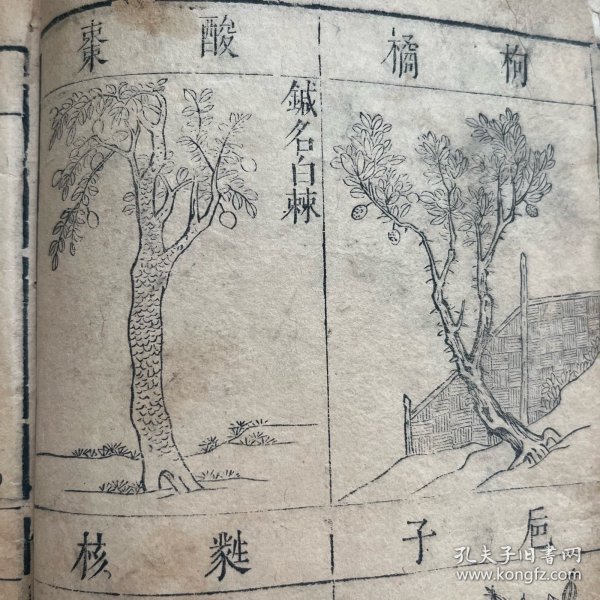 枸橘
酸棗
鍼名白棘
卮子
核
孔夫子旧书网
www.kongfz.com